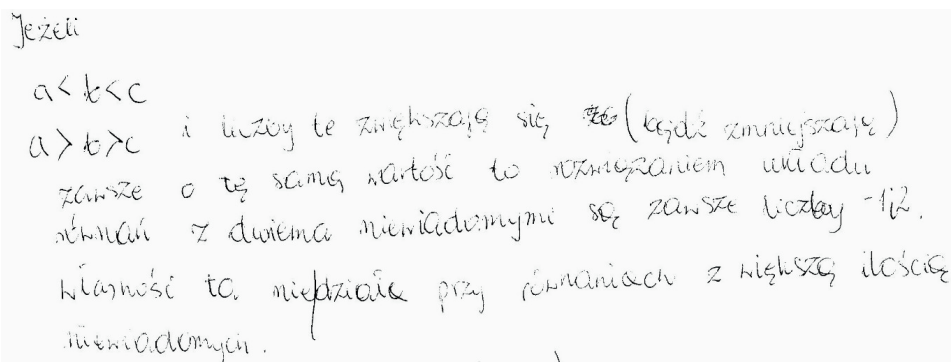 Jeżeli
a < b < c
a > b > c i liczby te zwiększają się (bądź zmniejszają)
zawsze o tę samą wartość to rozwiązaniem układu
równań z dwiema niewiadomymi są zawsze liczby -1 i 2.
Własność ta nie działa przy równaniach z większą ilością
niewiadomych.